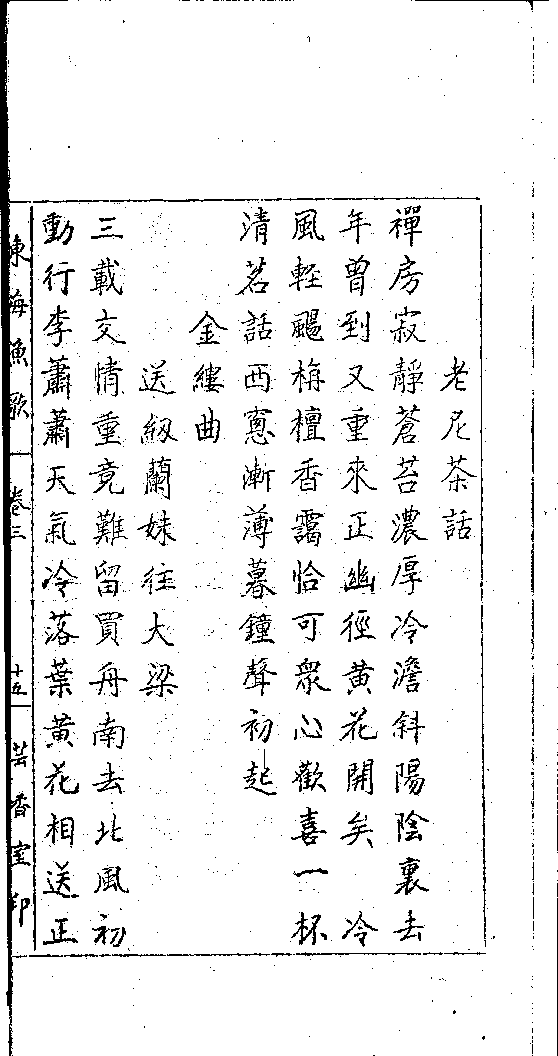 老尼茶話
禪房寂靜蒼苔濃厚冷澹斜陽陰裏去
年曾到又重來正幽徑黃花開矣　冷
風輕颺栴檀香靄恰可衆心歡喜一杯
清茗話西窻漸薄暮鐘聲初起
金縷曲
送紉蘭妹往大梁
三載交情重竟難留買舟南去北風初
動行李蕭蕭天氣冷落葉黃花相送正
東海漁歌　卷三　十五　芸香室印